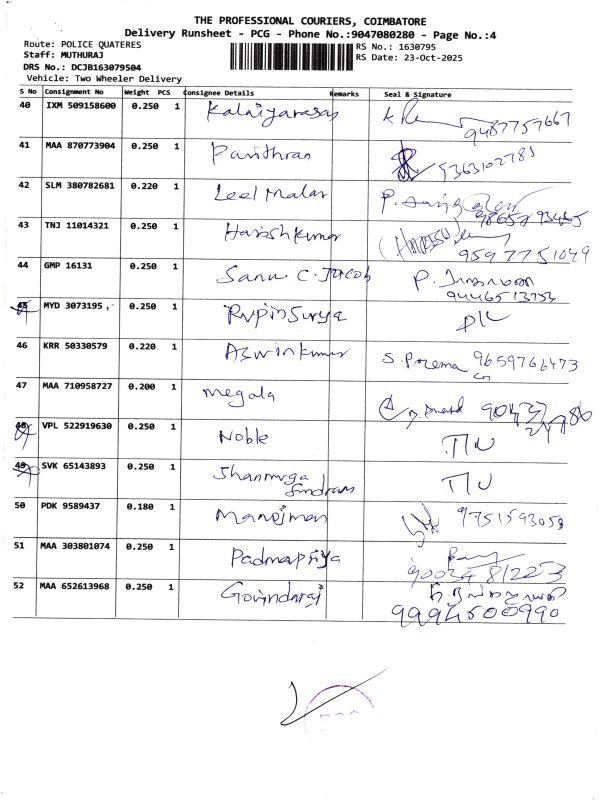 THE PROFESSIONAL COURIERS, COIMBATORE
Delivery Runsheet - PCG - Phone No.:9047080280 - Page No.:4
Route: POLICE QUATERES
RS No.: 1630795
Staff: MUTHURAJ
RS Date: 23-Oct-2025
DRS No.: DCJB163079504
Vehicle: Two Wheeler Delivery
S No Consignment No Weight PCS Consignee Details Remarks Seal & Signature
40 IXM 509158600 0.250 1 Kalaiyarasan 9487757667
41 MAA 870773904 0.250 1 Pavithran 9363102785
42 SLM 380782681 0.220 1 Leel Malar
43 TNJ 11014321 0.250 1 Harishkumar 9597751049
44 GMP 16131 0.250 1 Sanu C. Jacob 9446513753
45 MYD 3073195 0.250 1 Rupin Surya D/L
46 KRR 50330579 0.220 1 Aswinkumar S. Prema 9659766473
47 MAA 710958727 0.200 1 Megala
48 VPL 522919630 0.250 1 Noble
49 SVK 65143893 0.250 1 Shanmuga Sundram
50 PDK 9589437 0.180 1 Manojman 9751593058
51 MAA 303801074 0.250 1 Padmapriya 9003481223
52 MAA 652613968 0.250 1 Govindaraj 9994500990